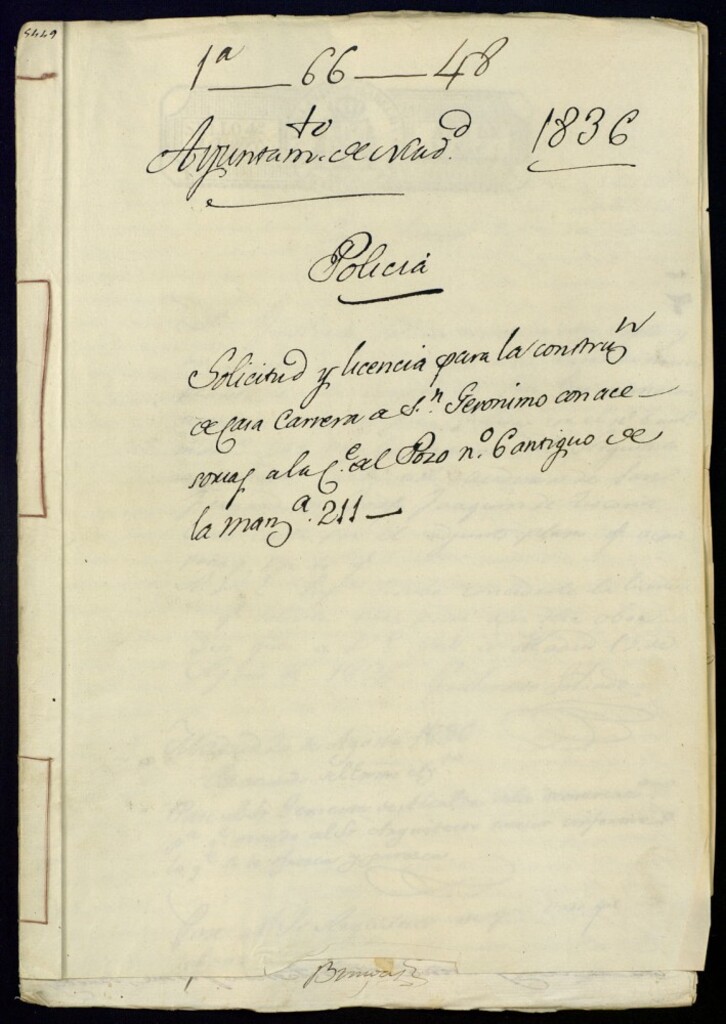 5449
1ª — 66 — 48
Ayuntamto. de Mad.d 1836
Policia
Solicitud y licencia para la construn
de Casa Carrera de S.n Geronimo con acce-
sorias a la C.e del Pozo n.o 6 antiguo de
la manz.a 211 —